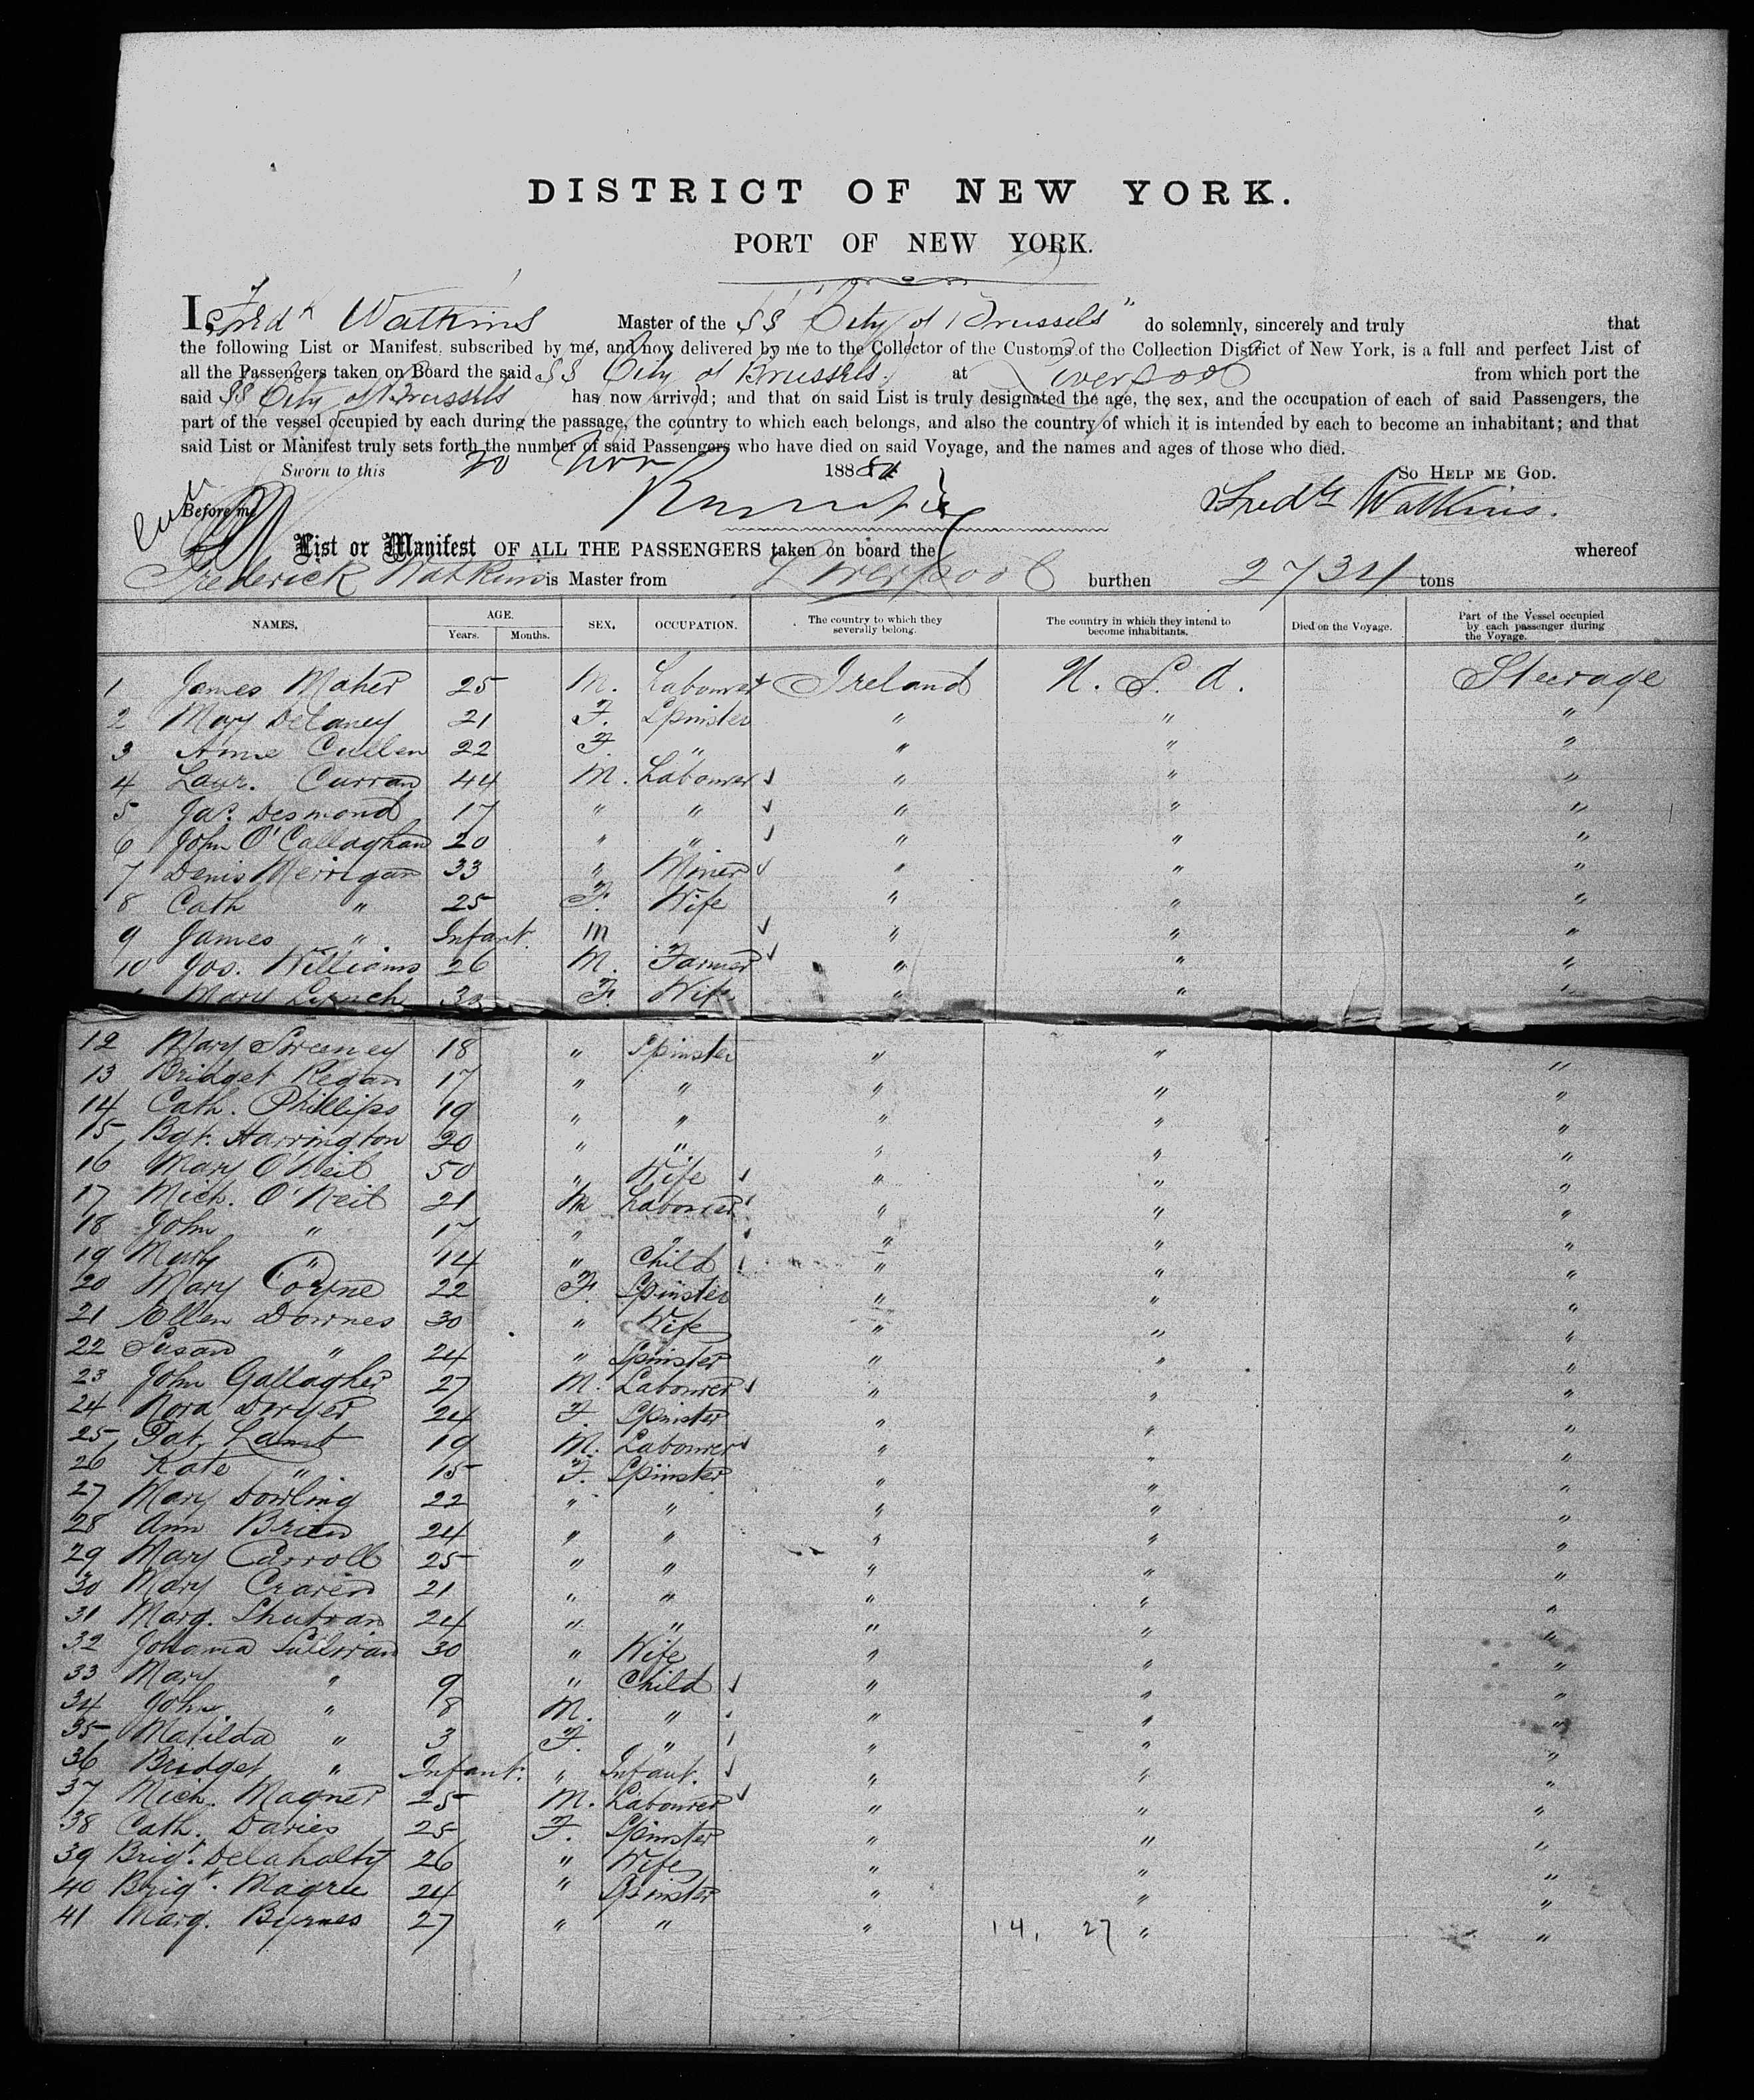 DISTRICT OF NEW YORK.
PORT OF NEW YORK.
I, Fredk Watkins Master of the SS "City of Brussels" do solemnly, sincerely and truly that
the following List or Manifest, subscribed by me, and now delivered by me to the Collector of the Customs of the Collection District of New York, is a full and perfect List of
all the Passengers taken on Board the said SS City of Brussels at Liverpool from which port the
said SS City of Brussels has now arrived; and that on said List is truly designated the age, the sex, and the occupation of each of said Passengers, the
part of the vessel occupied by each during the passage, the country to which each belongs, and also the country of which it is intended by each to become an inhabitant; and that
said List or Manifest truly sets forth the number of said Passengers who have died on said Voyage, and the names and ages of those who died.
Sworn to this 20 Nov 188 So HELP ME GOD.
Before me Fredk Watkins.
List or Manifest OF ALL THE PASSENGERS taken on board the whereof
Frederick Watkins is Master from Liverpool burthen 2734 tons
NAMES. AGE. Years. Months. SEX. OCCUPATION. The country to which they severally belong. The country in which they intend to become inhabitants. Died on the Voyage. Part of the Vessel occupied by each passenger during the Voyage.
1 James Maher 25 M. Labourer Ireland U. S. A. Steerage
2 Mary Delaney 21 F. Spinster " " "
3 Anne Cullen 22 F. " " " "
4 Laur. Curran 44 M. Labourer " " "
5 Jas. Desmond 17 " " " " "
6 John O'Callaghan 20 " " " " "
7 Denis Merrigan 33 " Miner " " "
8 Cath " 25 F. Wife " " "
9 James " Infant. m " " "
10 Jos. Williams 26 M. Farmer " " "
Mary Lynch F. Wife " " "
12 Mary Sweeney 18 " Spinster " " "
13 Bridget Regan 17 " " " " "
14 Cath. Phillips 19 " " " " "
15 Bgt. Harrington 20 " " " " "
16 Mary O'Neil 50 " Wife " " "
17 Mich. O'Neil 21 M Labourer " " "
18 John " 17 " " " " "
19 " 14 " Child " " "
20 Mary Coyne 22 F. Spinster " " "
21 Ellen Downes 30 " Wife " " "
22 Susan " 24 " Spinster " " "
23 John Gallagher 27 M. Labourer " " "
24 Nora Dwyer 24 F. Spinster " " "
25 Pat. Lamb 19 M. Labourer " " "
26 Kate " 15 F. Spinster " " "
27 Mary Dowling 22 " " " " "
28 Ann Brien 24 " " " " "
29 Mary Carroll 25 " " " " "
30 Mary Craven 21 " " " " "
31 Marg. 24 " " " " "
32 Johanna Sullivan 30 " Wife " " "
33 Mary " 9 " Child " " "
34 John " 8 M. " " " "
35 Matilda " 3 F. " " " "
36 Bridget " Infant. " Infant. " " "
37 Mich. Magner 25 M. Labourer " " "
38 Cath. Davies 25 F. Spinster " " "
39 Brigt. Delahalty 26 " Wife " " "
40 Brigt. Magree 24 " Spinster " " "
41 Marg. Byrnes 27 " " " 14, 27 " "